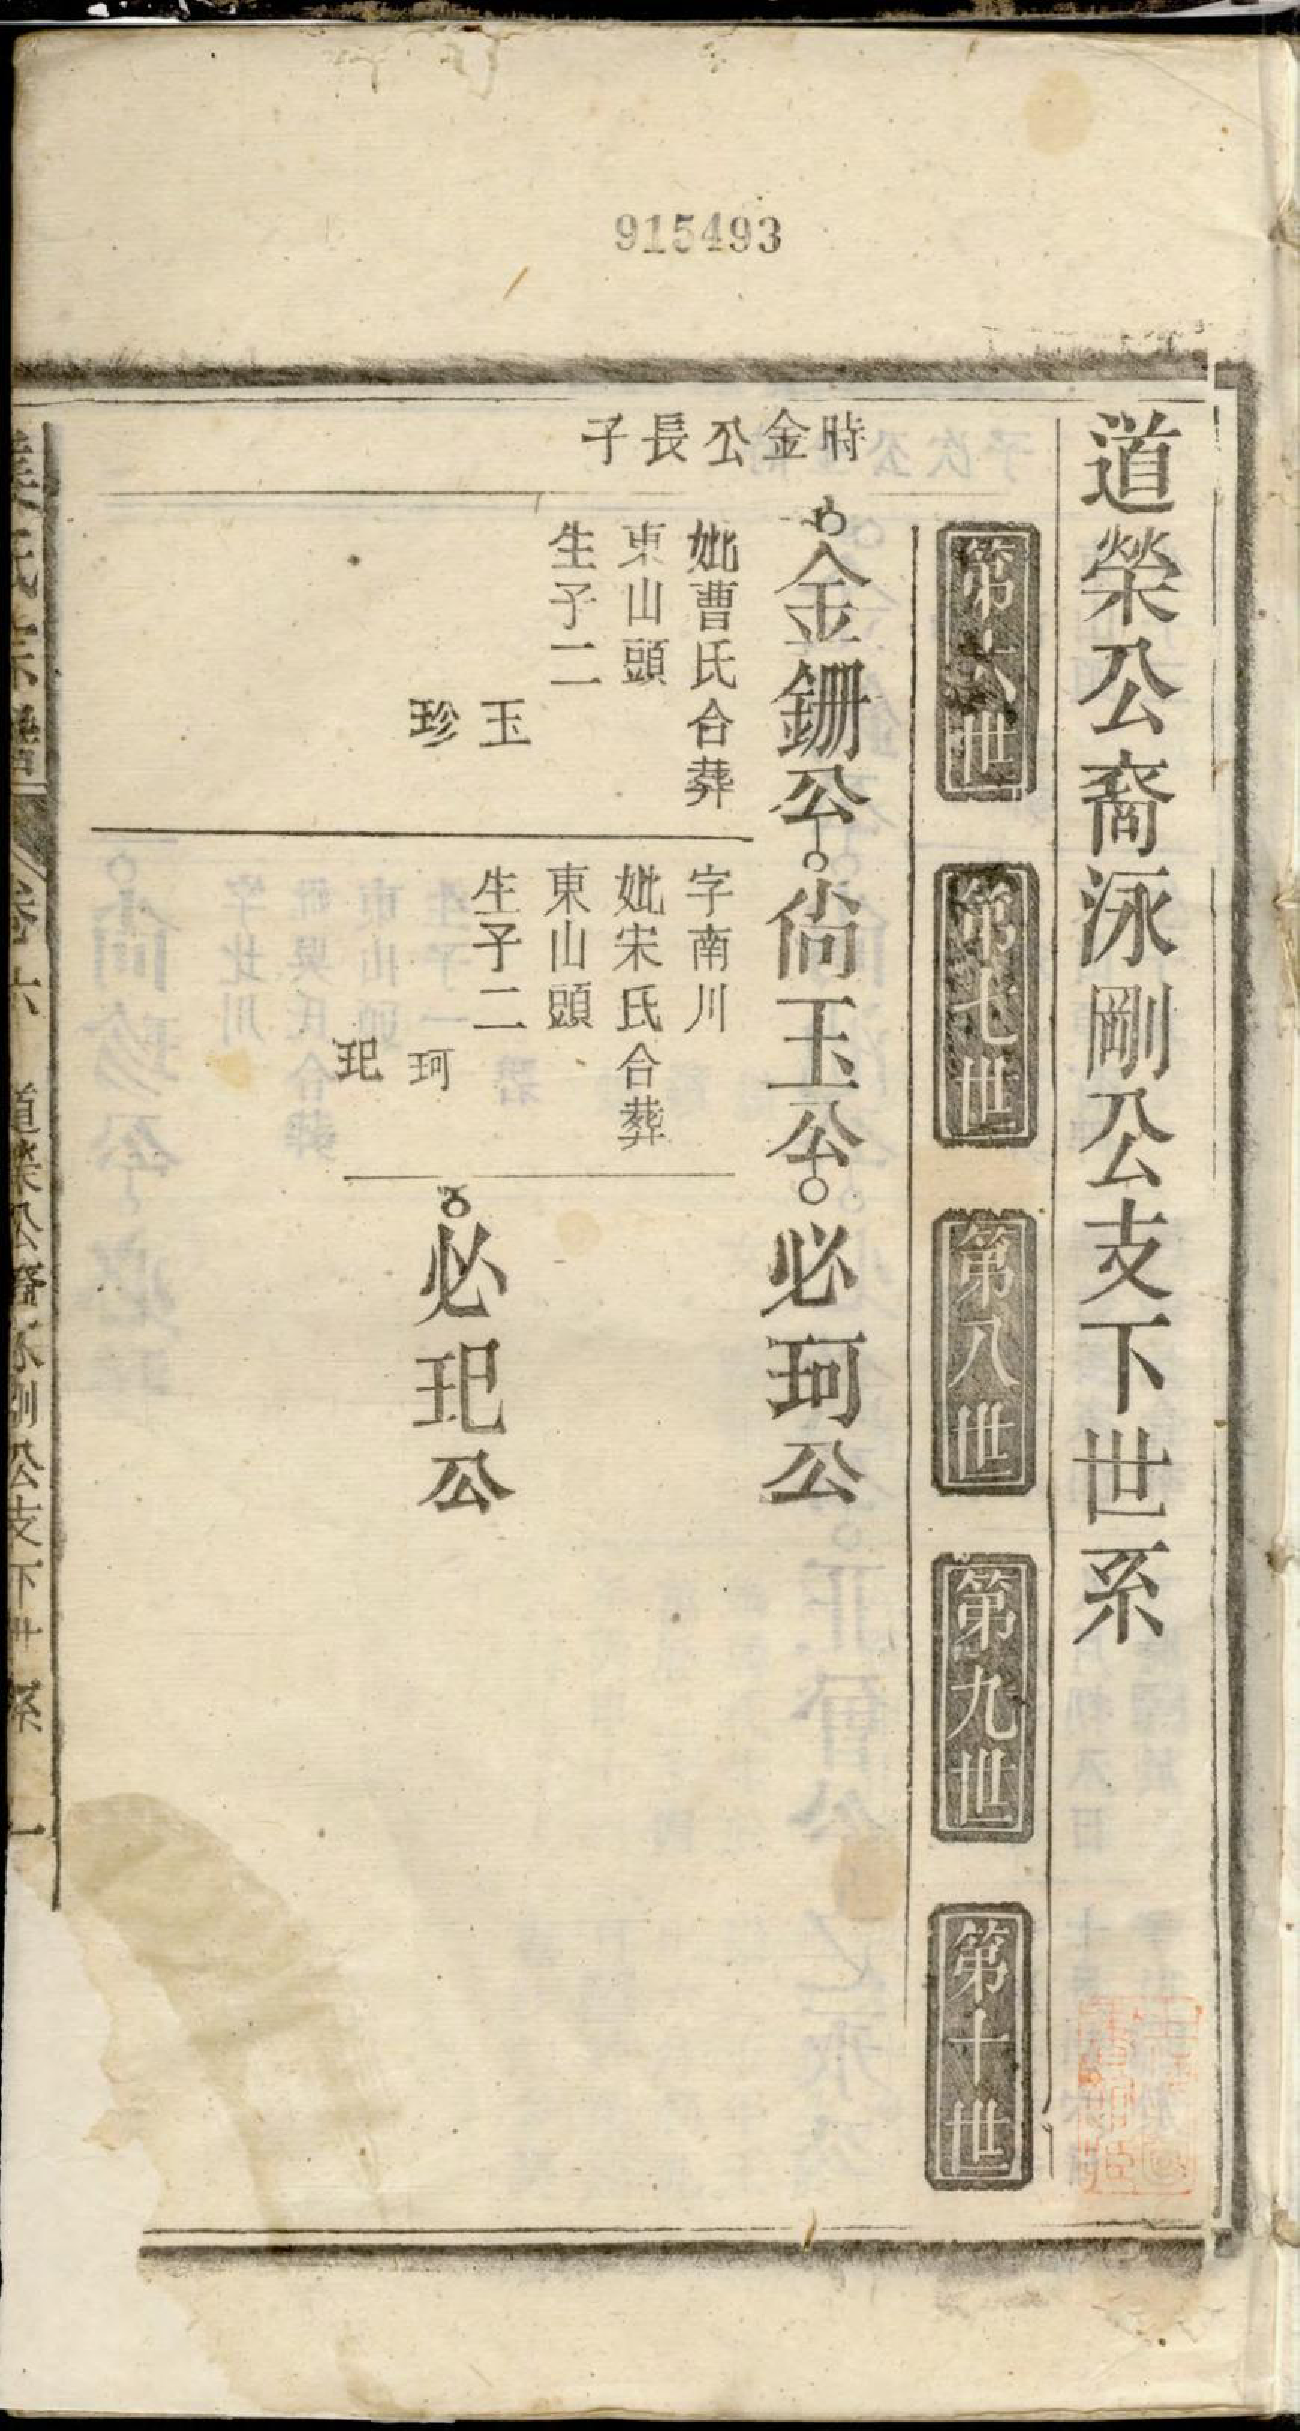 915493
道榮公裔泳剛公支下世系
第六世
第七世
第八世
第九世
第十世
時金公長子
金鏞公
尙玉公
必珂公
妣曹氏合葬
東山頭
生子二
玉
珍
字南川
妣宋氏合葬
東山頭
生子二
珂
玘
必玘公
氏宗譜
卷六
道榮公裔泳剛公支下世系
一